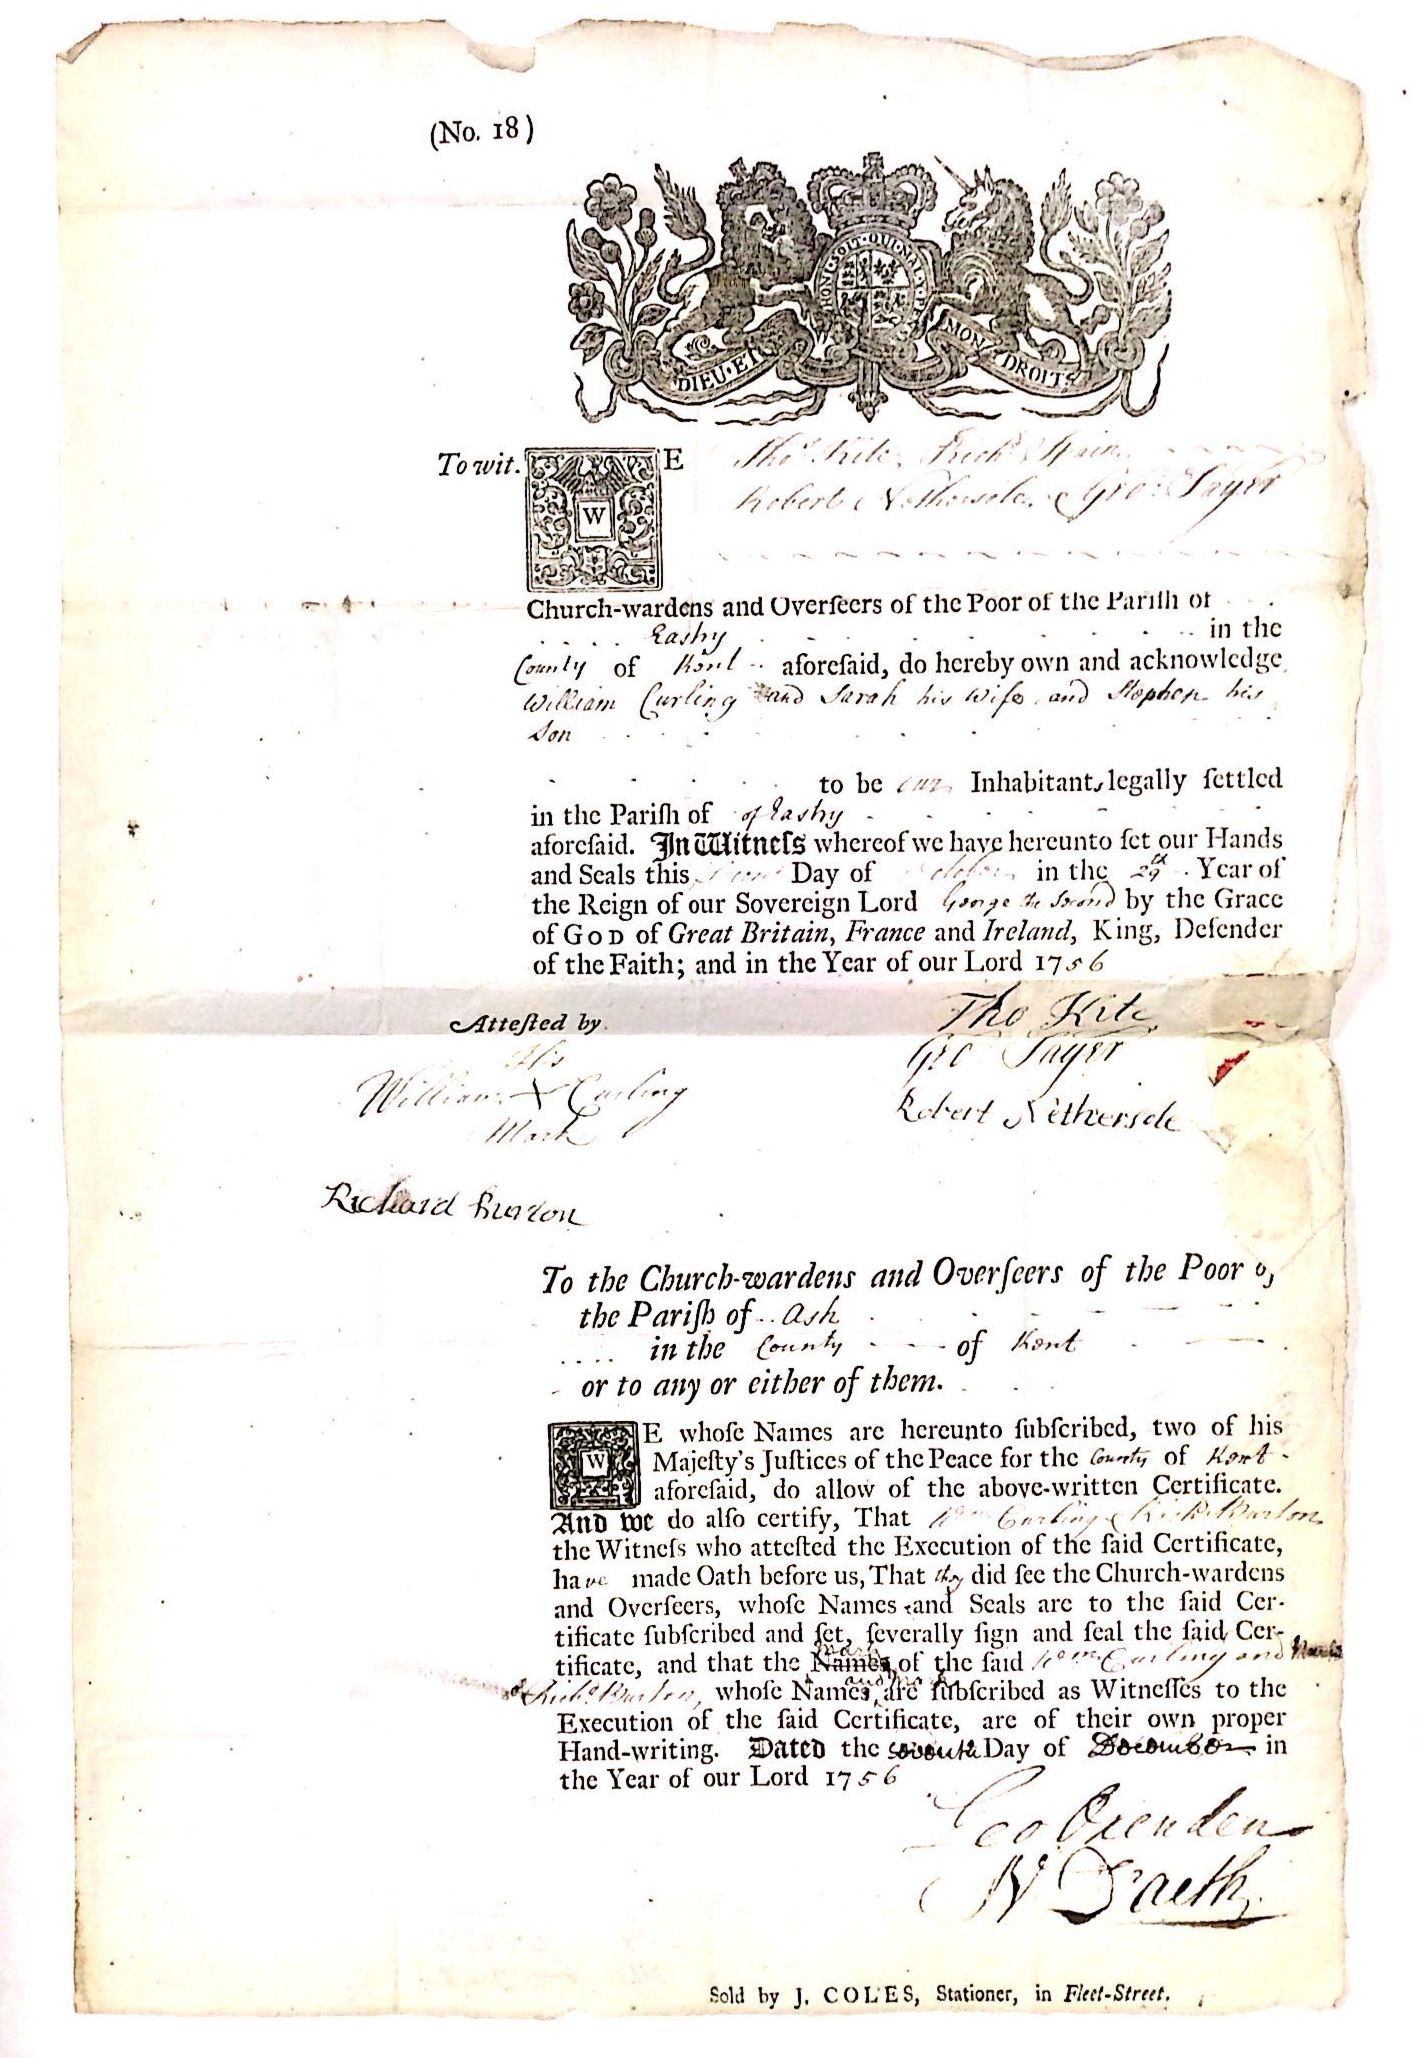 (No. 18)
HONI·SOIT·QUI·MAL·Y·PENSE
DIEU·ET· MON DROIT
To wit. WE Tho.s Kite, Rich.d Spain
Robert Nethersole, Geo: Sayer
Church-wardens and Overſeers of the Poor of the Pariſh of
Eastry in the
County of Kent aforeſaid, do hereby own and acknowledge
William Curling and Sarah his Wife, and Stephen his
Son
to be our Inhabitants legally ſettled
in the Pariſh of of Eastry
aforeſaid. In Witneſs whereof we have hereunto ſet our Hands
and Seals this Day of October in the 29th Year of
the Reign of our Sovereign Lord George the Second by the Grace
of GOD of Great Britain, France and Ireland, King, Defender
of the Faith; and in the Year of our Lord 1756
Atteſted by
His
William X Curling
Mark
Richard Burton
Tho Kite
Geo Sayer
Robert Nethersole
To the Church-wardens and Overſeers of the Poor of
the Pariſh of Ash
in the County of Kent
or to any or either of them.
WE whoſe Names are hereunto ſubſcribed, two of his
Majeſty's Juſtices of the Peace for the County of Kent
aforeſaid, do allow of the above-written Certificate.
And we do alſo certify, That Wm Curling & Rich.d Burton
the Witneſs who atteſted the Execution of the ſaid Certificate,
have made Oath before us, That they did ſee the Church-wardens
and Overſeers, whoſe Names and Seals are to the ſaid Cer-
tificate ſubſcribed and ſet, ſeverally ſign and ſeal the ſaid Cer-
tificate, and that the Names mark of the ſaid Wm Curling and Name
of Rich.d Burton, whoſe Names and Mark are ſubſcribed as Witneſſes to the
Execution of the ſaid Certificate, are of their own proper
Hand-writing. Dated the seventh Day of December in
the Year of our Lord 1756
Geo Oxenden
N D'aeth
Sold by J. COLES, Stationer, in Fleet-Street.